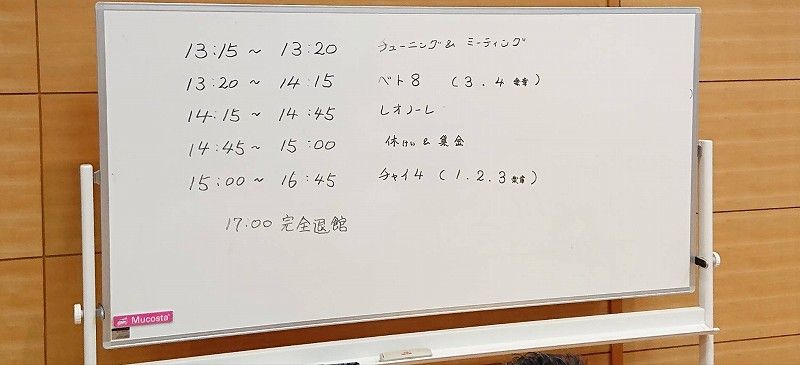 13:15 ~ 13:20 チューニング & ミーティング
13:20 ~ 14:15 ベト8 (3.4楽章)
14:15 ~ 14:45 レオノーレ
14:45 ~ 15:00 休けい & 集金
15:00 ~ 16:45 チャイ4 (1.2.3楽章)
17:00 完全退館
Mucosta